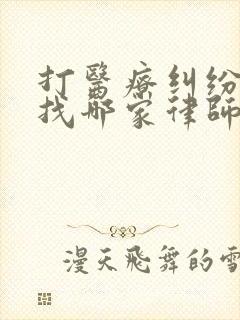 打醫療糾紛
找那家律師
漫天飛舞的雪